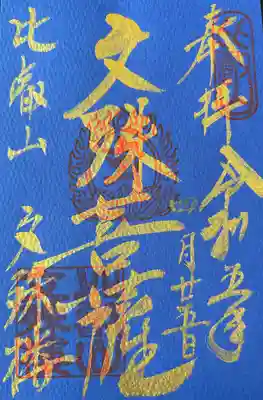 奉拝 令和五年
月廿五日
文殊菩薩
比叡山 文殊楼